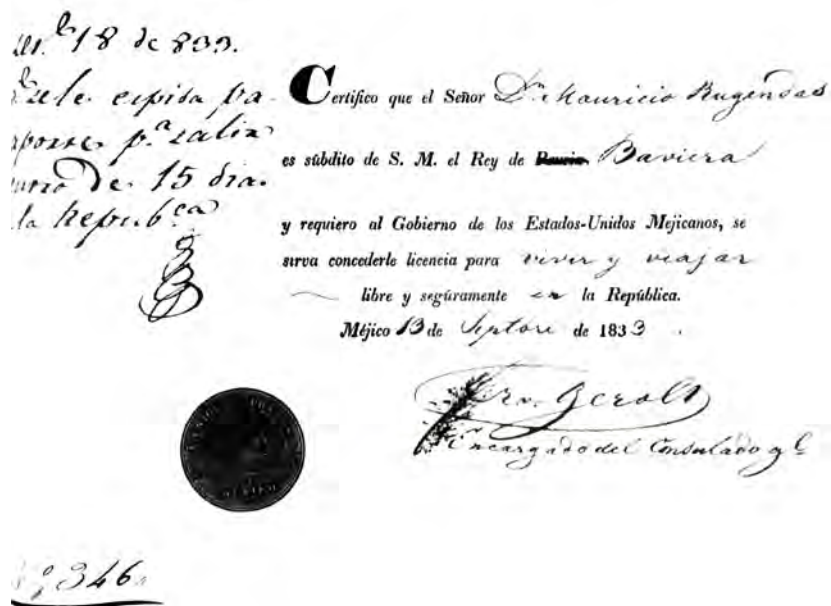 18 de 833.
espida pa-
p.ª salir
de 15 dias
la Repub.ca
Certifico que el Señor Dn. Mauricio Rugendas
es súbdito de S. M. el Rey de Baviera
y requiero al Gobierno de los Estados-Unidos Mejicanos, se
sirva concederle licencia para vivir y viajar
libre y segúramente en la República.
Méjico 13 de Septbre de 1833.
Gerolt
Encargado del Consulado gl
346.